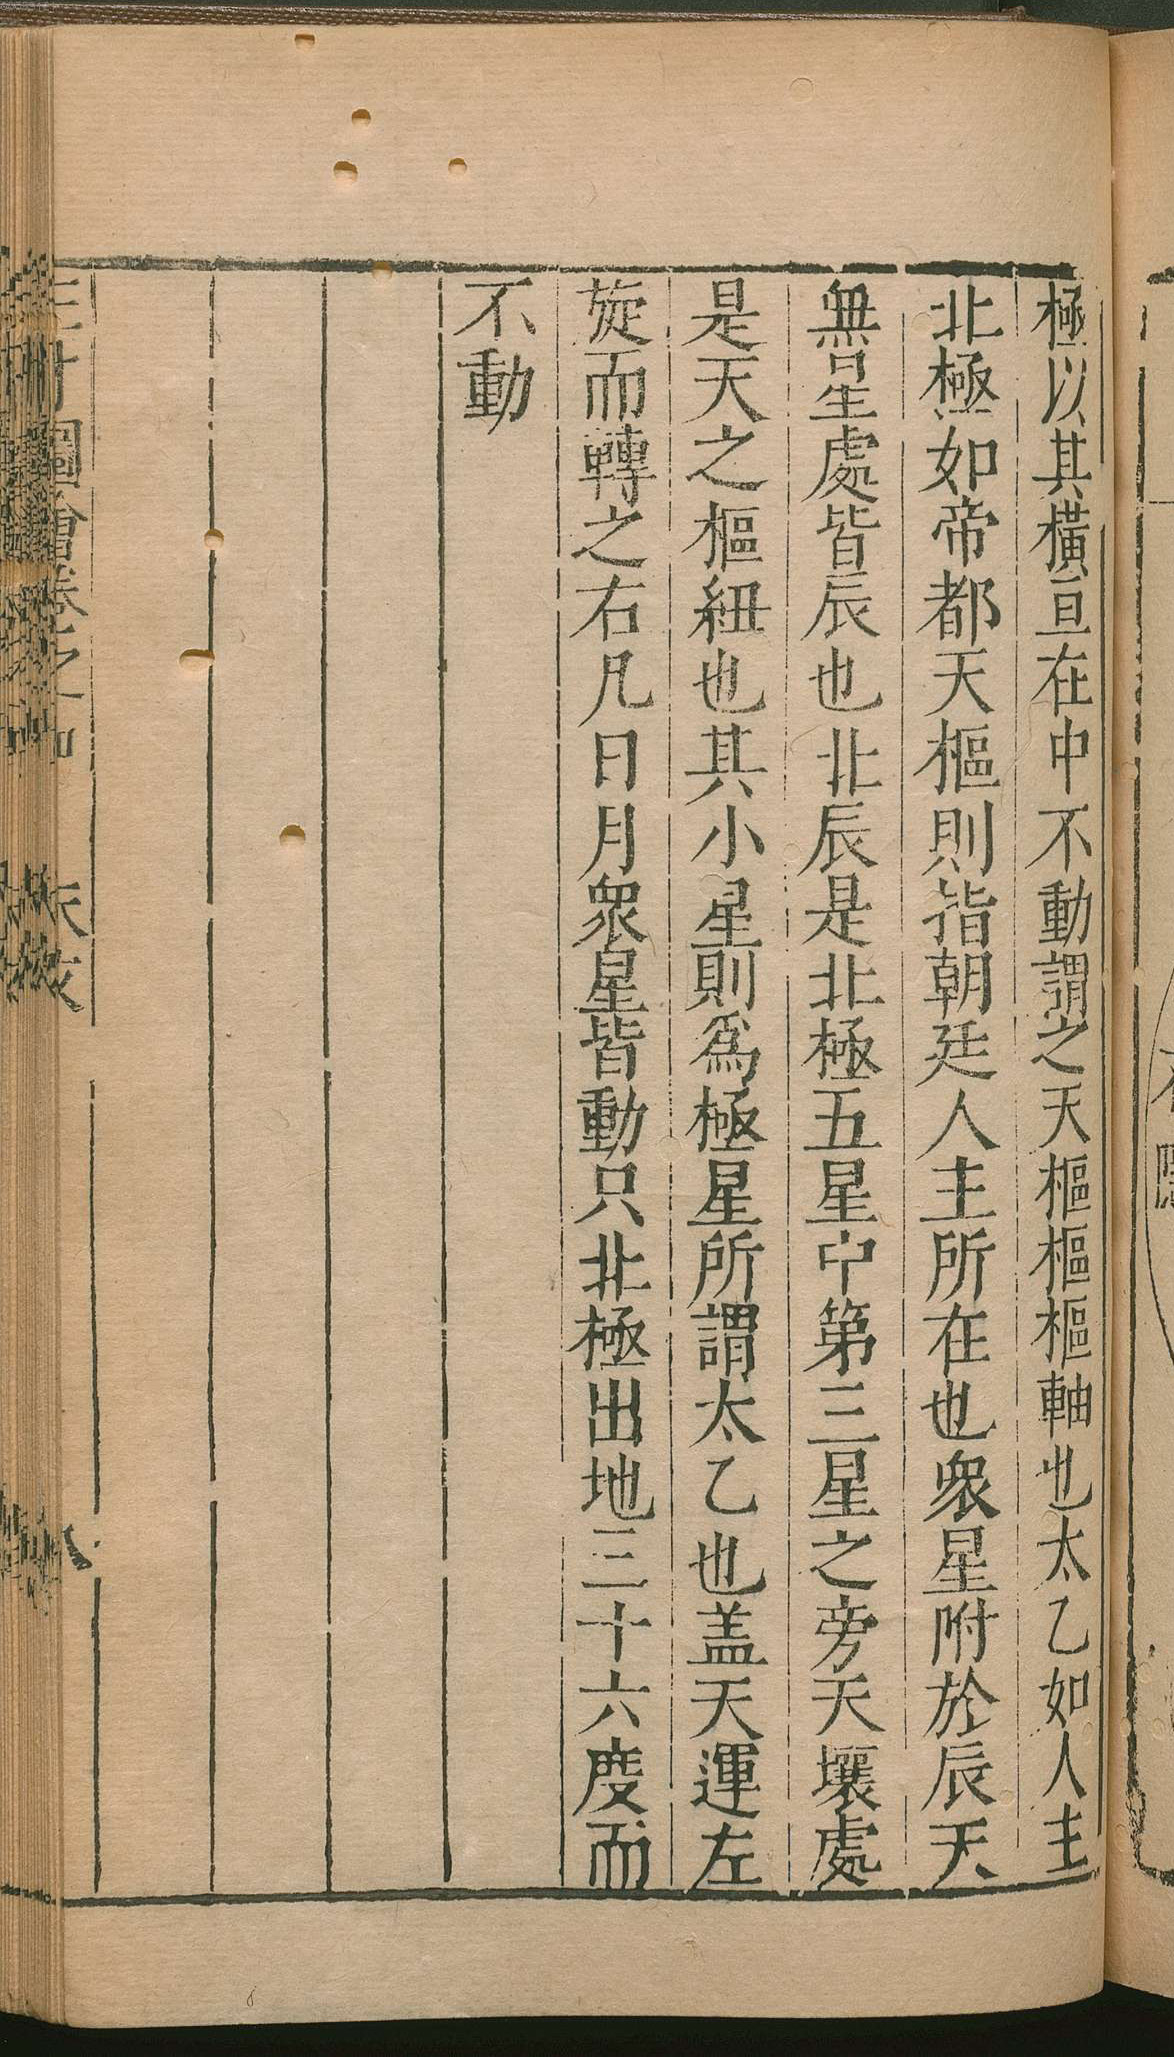 極以其橫亘在中不動謂之天樞樞樞軸也太乙如人主
北極如帝都天樞則指朝廷人主所在也衆星附於辰天
無星處皆辰也北辰是北極五星中第三星之旁天壤處
是天之樞紐也其小星則為極星所謂太乙也盖天運左
旋而轉之右凡日月衆星皆動只北極出地三十六度而
不動
圖會卷之